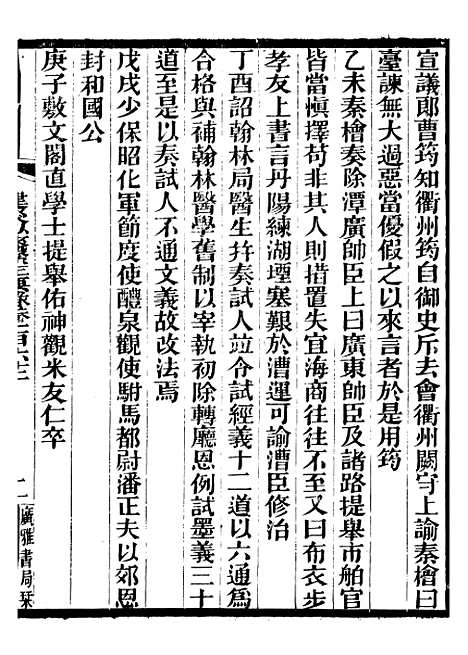 宣議郎曹筠知衢州筠自御史斥去會衢州闕守上諭秦檜曰
臺諫無大過惡當優假之以來言者於是用筠
乙未秦檜奏除潭廣帥臣上曰廣東帥臣及諸路提舉市舶官
皆當愼擇苟非其人則措置失宜海商往往不至又曰布衣步
孝友上書言丹陽練湖堙塞艱於漕運可諭漕臣修治
丁酉詔翰林局醫生幷奏試人竝令試經義十二道以六通爲
合格與補翰林醫學舊制以宰執初除轉廳恩例試墨義三十
道至是以奏試人不通文義故改法焉
戊戌少保昭化軍節度使醴泉觀使駙馬都尉潘正夫以郊恩
封和國公
庚子敷文閣直學士提舉佑神觀米友仁卒
廣雅書局栞